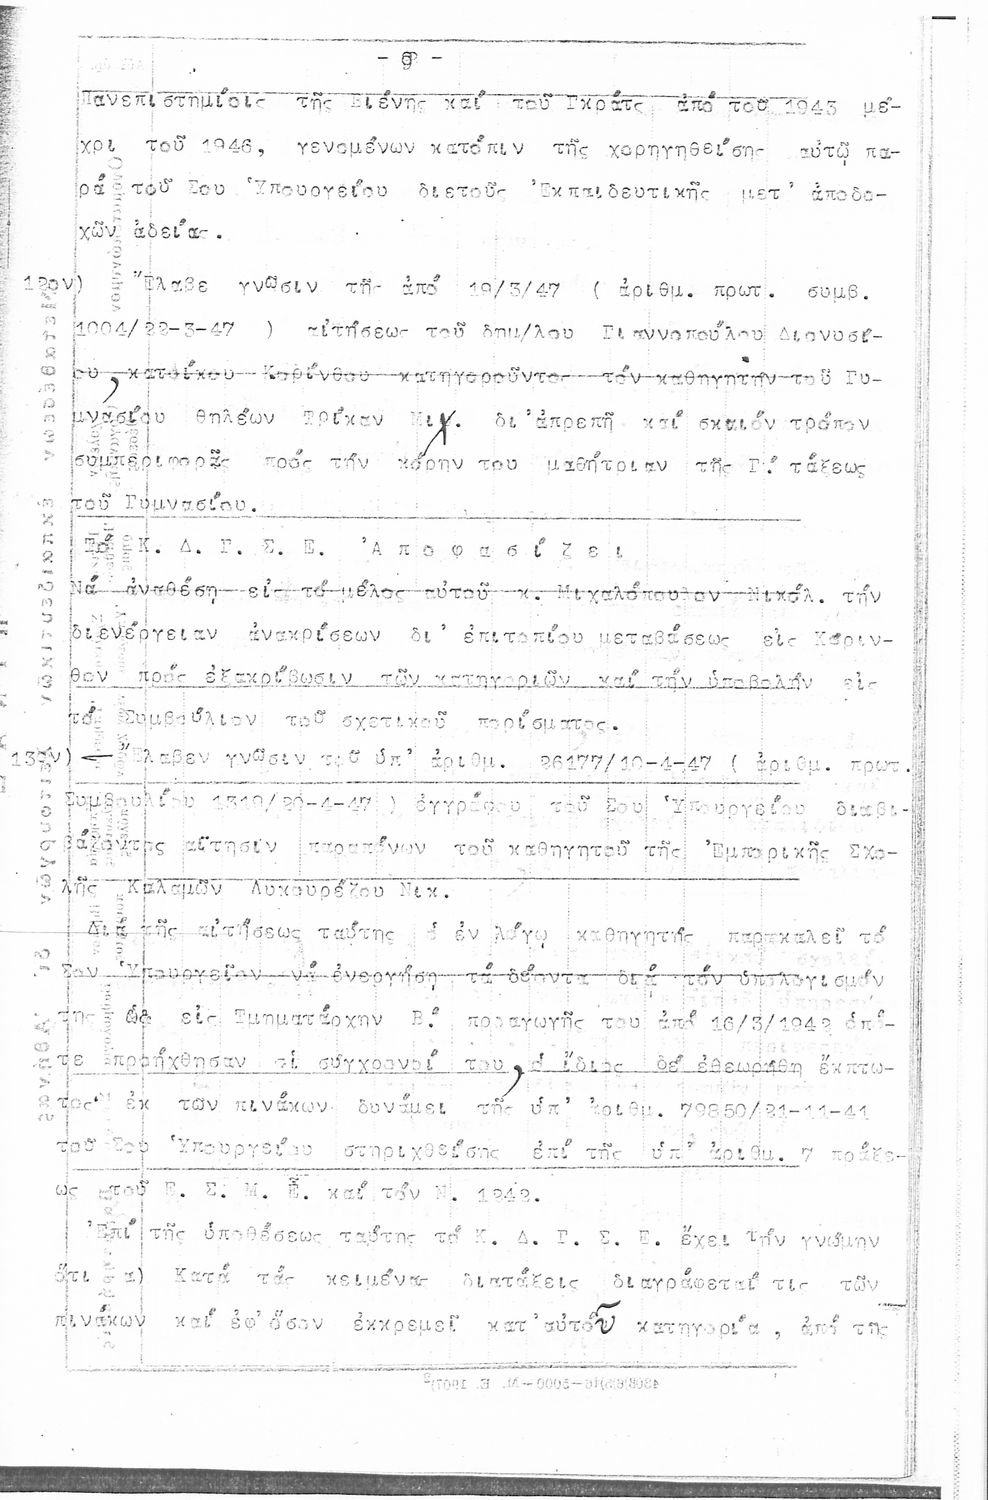 - 9 -
Πανεπιστημίοις τῆς Βιένης καί τοῦ Γκράτς ἀπό τοῦ 1943 μέ-
χρι τοῦ 1946, γενομένων κατόπιν τῆς χορηγηθείσης αὐτῷ πα-
ρά τοῦ Σου Ὑπουργείου διετοῦς Ἐκπαιδευτικῆς μετ' ἀποδο-
χῶν ἀδείας.
12ον) Ἔλαβε γνῶσιν τῆς ἀπό 19/3/47 ( ἀριθμ. πρωτ. συμβ.
1004/22-3-47 ) αἰτήσεως τοῦ δημ/λου Γιαννοπούλου Διονυσί-
ου, κατοίκου Κορίνθου κατηγοροῦντος τόν καθηγητήν τοῦ Γυ-
μνασίου θηλέων Τρίκαν Μιχ. δι'ἀπρεπῆ καί σκαιόν τρόπον
συμπεριφορᾶς πρός τήν κόρην του μαθήτριαν τῆς Γ΄ τάξεως
τοῦ Γυμνασίου.
Τό Κ. Δ. Γ. Σ. Ε. Ἀποφασίζει
Νά ἀναθέση εἰς τό μέλος αὐτοῦ κ. Μιχαλόπουλον Νικόλ. τήν
διενέργειαν ἀνακρίσεων δι' ἐπιτοπίου μεταβάσεως εἰς Κόριν-
θον πρός ἐξακρίβωσιν τῶν κατηγοριῶν καί τήν ὑποβολήν εἰς
τό Συμβούλιον τοῦ σχετικοῦ πορίσματος.
13ον) Ἔλαβεν γνῶσιν τοῦ ὑπ' ἀριθμ. 26177/10-4-47 ( ἀριθμ. πρωτ.
Συμβουλίου 1319/29-4-47 ) ἐγγράφου τοῦ Σου Ὑπουργείου διαβι-
βάζοντος αἴτησιν παραπόνων τοῦ καθηγητοῦ τῆς Ἐμπορικῆς Σχο-
λῆς Καλαμῶν Λυκουρέζου Νικ.
Διά τῆς αἰτήσεως ταύτης ὁ ἐν λόγῳ καθηγητής παρακαλεῖ τό
Σον Ὑπουργεῖον νά ἐνεργήση τά δέοντα διά τόν ὑπολογισμόν
της ὡς εἰς Τμηματάρχην Β΄ προαγωγῆς του ἀπό 16/3/1942 ὁπό-
τε προήχθησαν οἱ σύγχρονοί του, ὁ ἴδιος δέ ἐθεωρήθη ἔκπτω-
τος ἐκ τῶν πινάκων δυνάμει τῆς ὑπ' ἀριθμ. 79850/21-11-41
τοῦ Σου Ὑπουργείου στηριχθείσης ἐπί τῆς ὑπ' ἀριθμ. 7 πράξε-
ως τοῦ Ε. Σ. Μ. Ε. καί τόν Ν. 1242.
Ἐπί τῆς ὑποθέσεως ταύτης τό Κ. Δ. Γ. Σ. Ε. ἔχει τήν γνώμην
ὅτι α) Κατά τάς κειμένας διατάξεις διαγράφεταί τις τῶν
πινάκων καί ἐφ'ὅσον ἐκκρεμεῖ κατ'αὐτοῦ κατηγορία, ἀπό της